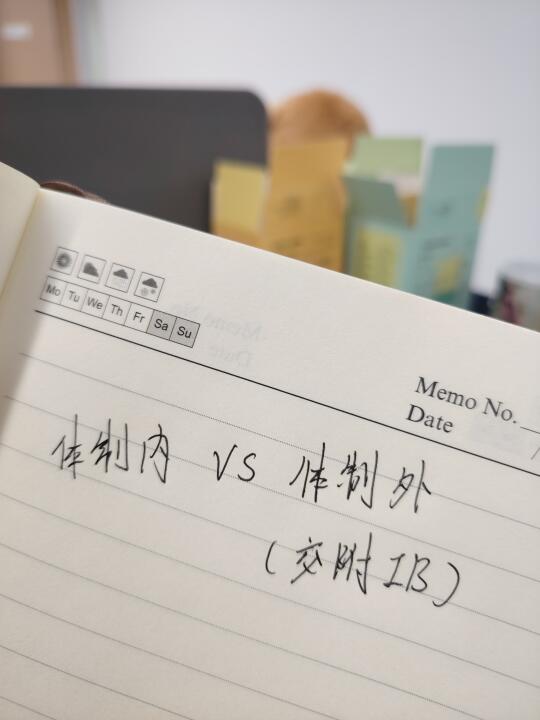 Mo Tu We Th Fr Sa Su
Memo No.
Date
体制内 VS 体制外
(交附IB)